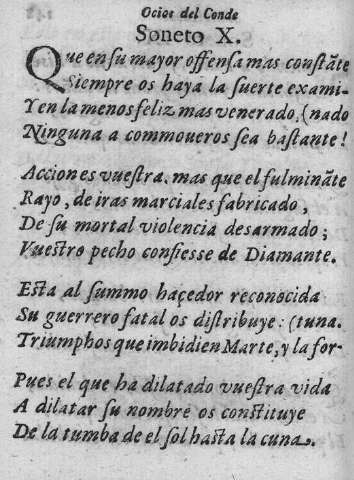 Ocios del Conde
Soneto X.
Que en su mayor offensa mas constãte
Siempre os haya la suerte exami-
Y en la menos feliz, mas venerado, (nado
Ninguna a commoueros sea bastante!
Acciones vuestra, mas que el fulminãte
Rayo, de iras marciales fabricado,
De su mortal violencia desarmado;
Vuestro pecho confiesse de Diamante.
Esta al summo haçedor reconocida
Su guerrero fatal os distribuye: (tuna.
Triumphos que imbidien Marte, y la for-
Pues el que ha dilatado vuestra vida
A dilatar su nombre os constituye
De la tumba de el sol hasta la cuna.